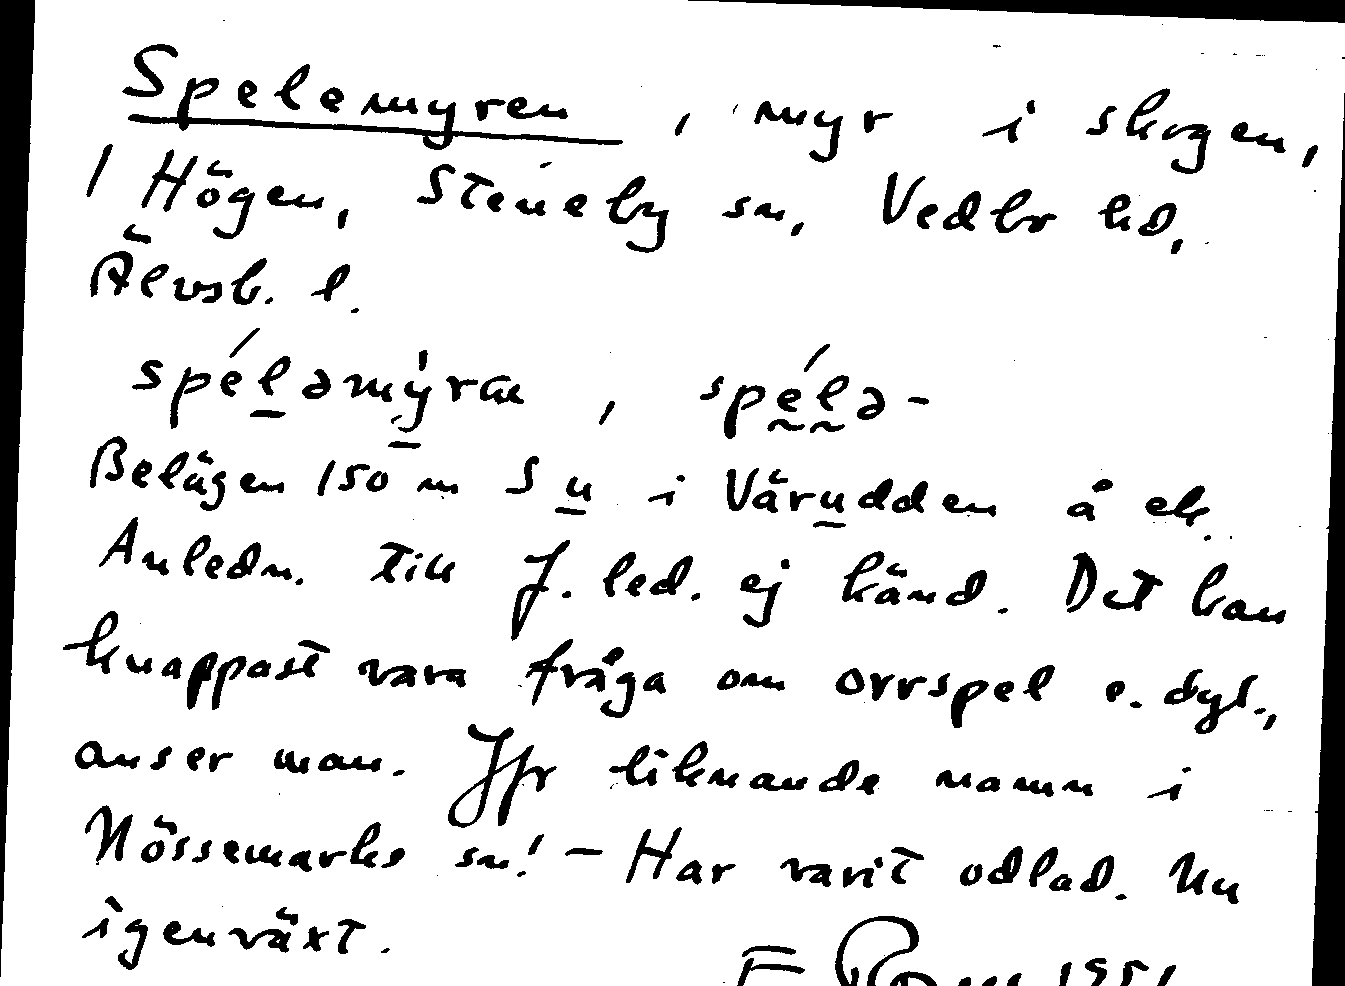 Spelemyren, myr i skogen,
1 Högen, Steneby sn, Vedbo hd,
Älvsb. l.
spéləmýra, spélə-
Belägen 150 m S u i Värudden å ek.
Anledn. till f. led. ej känd. Det kan
knappast vara fråga om orrspel e. dyl.,
anser man. Jfr liknande namn i
Nössemarks sn! - Har varit odlad. Nu
igenväxt.
1951